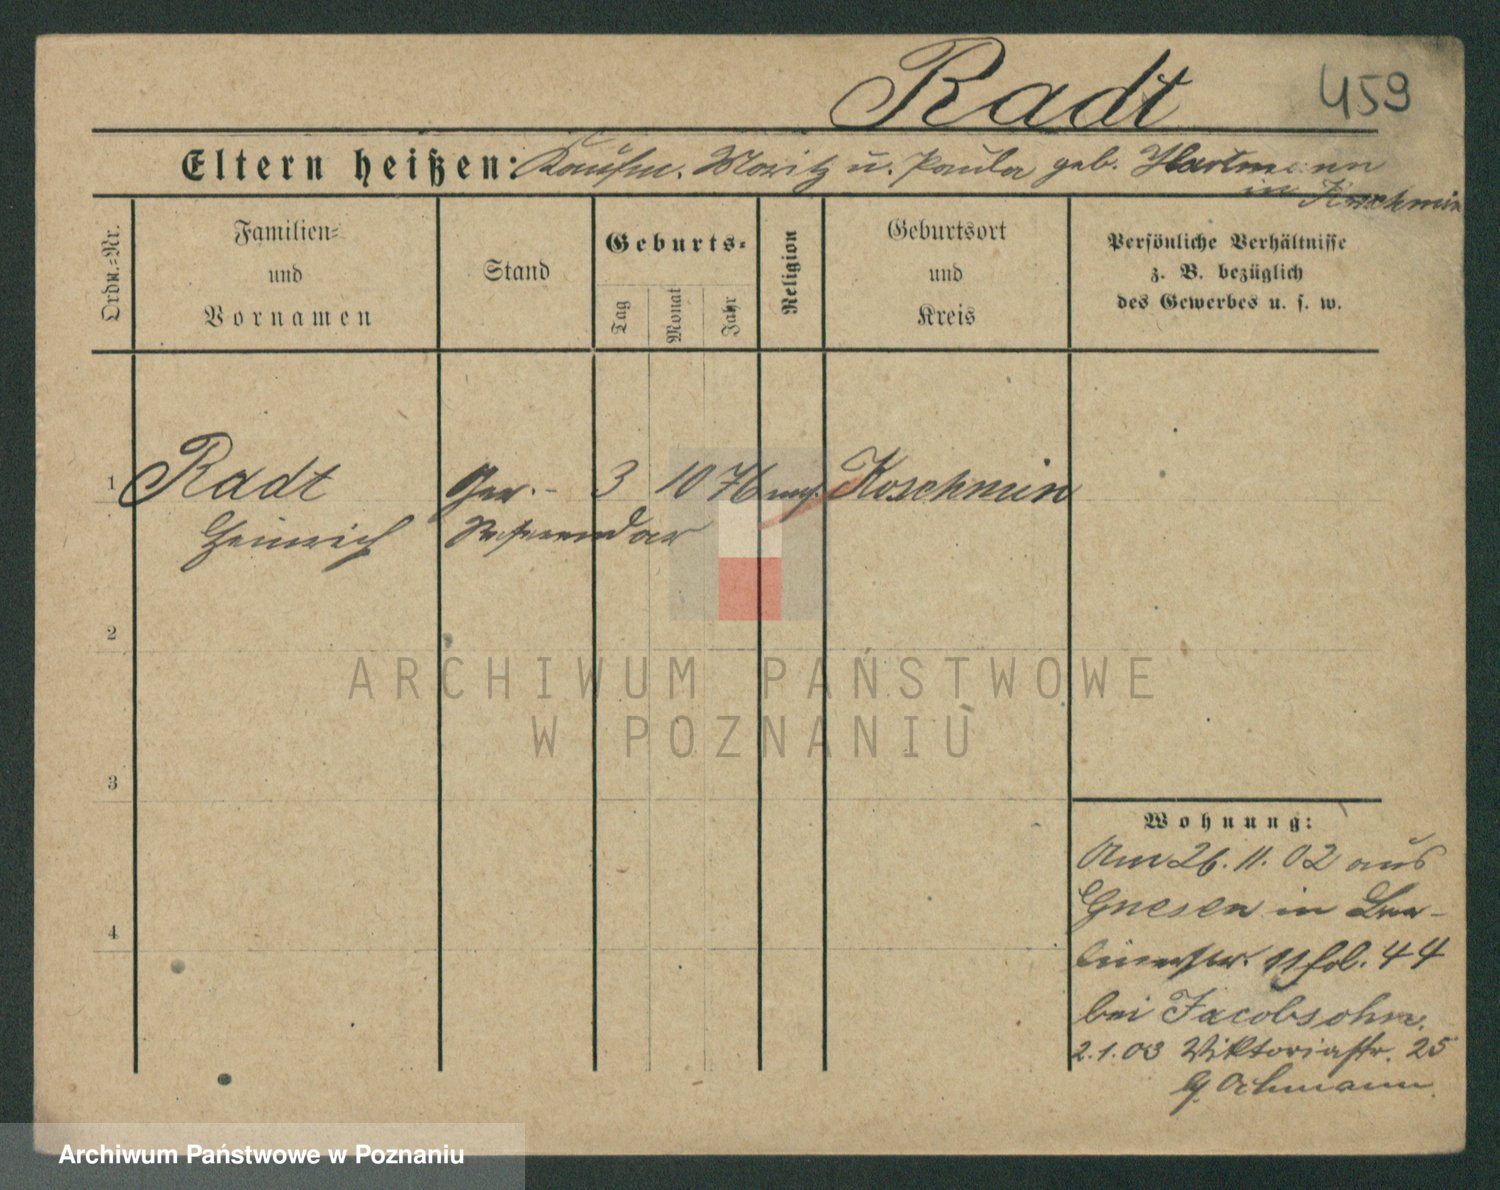 Radt 459
Eltern heißen: Kaufm. Moritz u. Paula geb. Hartmann
in Koschmin
Ordn.-Nr.
Familien-
und
Vornamen
Stand
Geburts-
Tag
Monat
Jahr
Religion
Geburtsort
und
Kreis
Persönliche Verhältnisse
z. B. bezüglich
des Gewerbes u. s. w.
1 Radt Ger.- 3 10 76 Koschmin
Heinrich Referendar
2
3
4
Wohnung:
Am 26. 11. 02 aus
Gnesen in
11 fol. 44
bei Jacobsohn.
2.1.03 Viktoriastr. 25
b/ Achmann.
ARCHIWUM PAŃSTWOWE
W POZNANIU
Archiwum Państwowe w Poznaniu